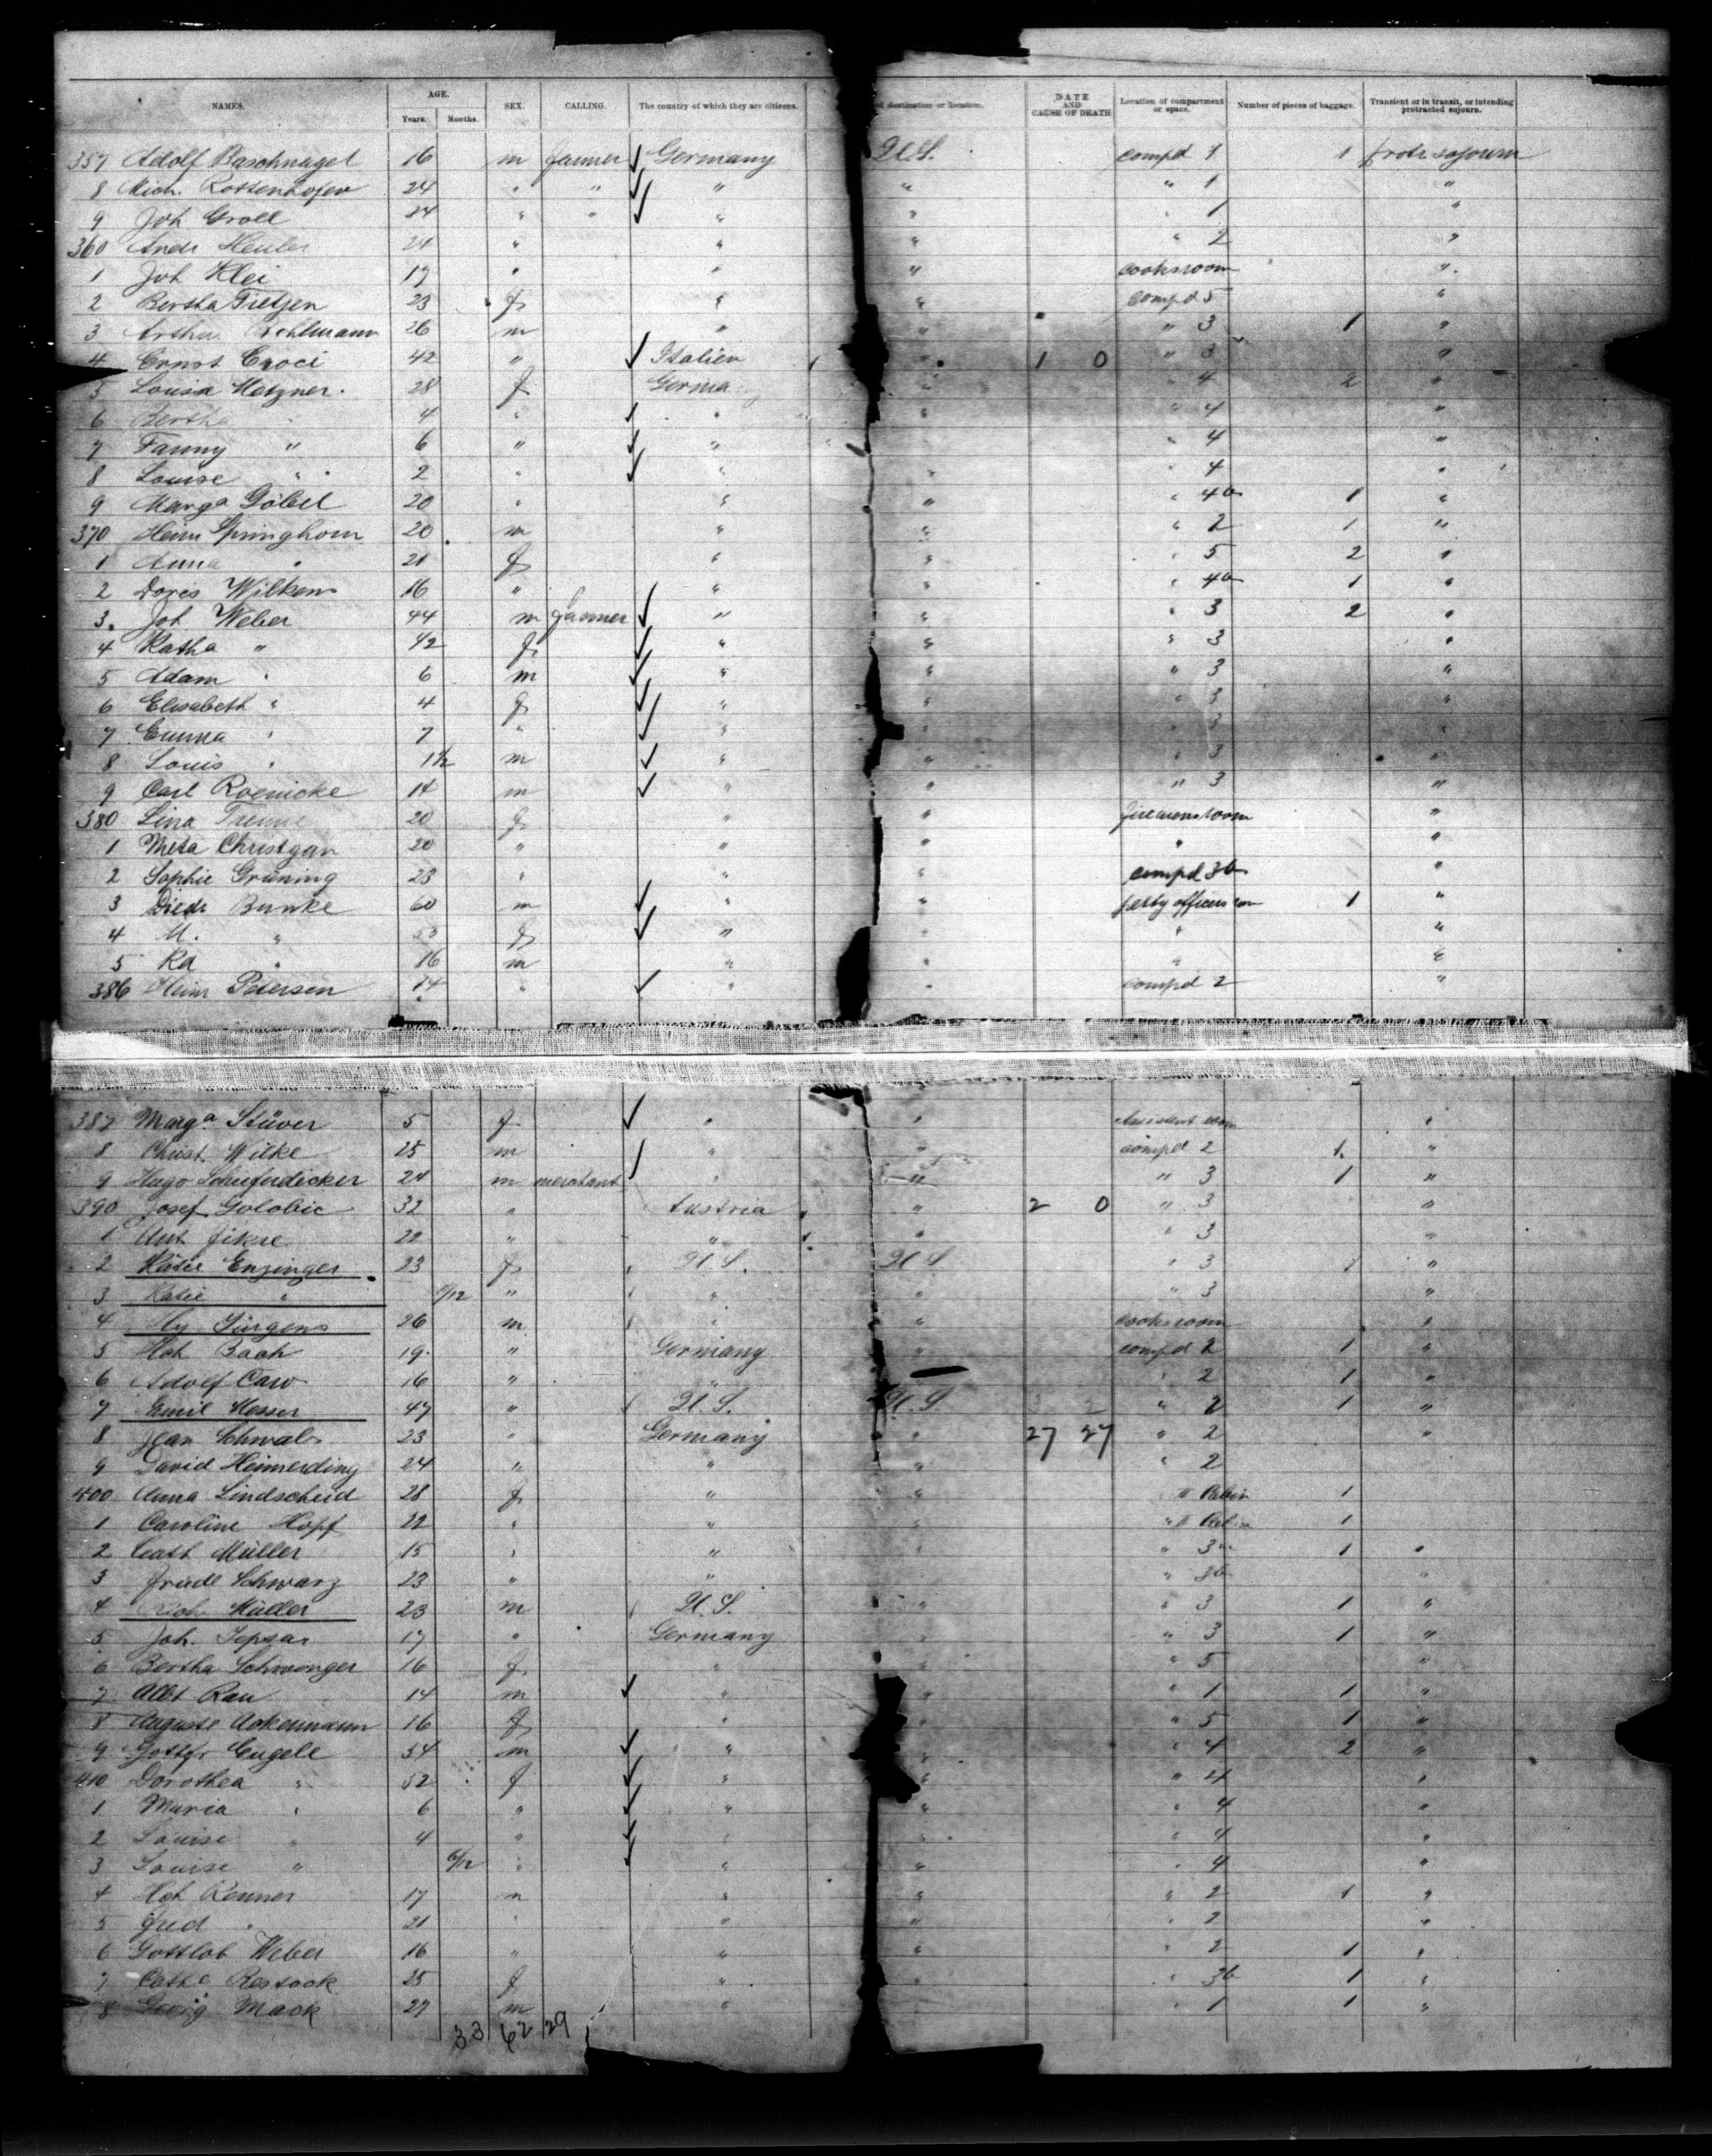 NAMES. AGE. SEX. CALLING. The country of which they are citizens. destination or location. DATE AND CAUSE OF DEATH Location of compartment or space. Number of pieces of baggage. Transient or in transit, or intending protracted sojourn.
Years. Months.
357 Adolf Baschnagel 16 m farmer Germany U.S. compd 1 1 protr sojourn
8 Mich. Rottenhofer 24 " " " " " 1 "
9 Joh Groll 24 " " " " " 1 "
360 Andr Heuler 24 " " " " 2 "
1 Joh Klei 17 " " " cooksroom "
2 Bertha Tietjen 23 f " " compd 5 "
3 Arthur Rohlmann 26 m " " " 3 1 "
4 Ernst Croci 42 " Italien " 1 0 " 3 "
5 Louisa Metzner. 28 f Germa " 4 2 "
6 Bertha " 4 " " " " 4 "
7 Fanny " 6 " " " 4 "
8 Louise " 2 " " " " 4 "
9 Marga Göbel 20 " " " " 4a 1 "
370 Heinr Springhorn 20 m " " " 2 1 "
1 Anna " 21 f " " " 5 2 "
2 Doris Wilkens 16 " " " " 4a 1 "
3. Joh Weber 44 m farmer " " " 3 2 "
4 Katha " 42 f " " " 3 "
5 Adam " 6 m " " " 3 "
6 Elisabeth " 4 f " " " 3 "
7 Emma " 7 " " " " 3 "
8 Louis " 1½ m " " " 3 "
9 Carl Roenicke 14 m " " 3 "
380 Lina 20 f " " firemens room "
1 Meta Christgau 20 " " " " "
2 Sophie Grüning 23 " " " compd 3b "
3 Diedr Bunke 60 m " " petty officers rm 1 "
4 M. " 53 f " " " "
5 Rd " 16 m " " " "
386 Heinr Petersen 14 " " " compd 2 "
387 Marga Stüver 5 f " " "
8 Christ. Wilke 25 m " " compd 2 1. "
9 Hugo Schieferdicker 24 m merchant " " " 3 1 "
390 Josef Golobic 32 " Austria " 2 0 " 3 "
1 Ant Jikse 22 " " " " 3 "
2 Katie Enzinger 23 f U.S. U S " 3 1 "
3 Katie " 11/12 " " " " 3 "
4 Hy Jürgens 26 m " " cooksroom "
5 Hch Bach 19 " Germany " compd 2 1 "
6 Adolf Caro 16 " " " 2 1 "
7 Emil Messer 47 " U.S. U.S. " 2 1 "
8 Jean Schwab 23 " Germany " 27 27 " 2 "
9 David Heimerding 24 " " " " 2
400 Anna Lindscheid 28 f " " II Cabin 1
1 Caroline Hopf 22 " " " II Cabin 1
2 Cath Müller 15 " " " 3 1 "
3 Friedl Schwarz 23 " " " 3b "
4 Müller 23 m U.S. " " 3 1 "
5 Joh. Tepsar 17 " Germany " " 3 1 "
6 Bertha Schwenger 16 f " " " 5 "
7 Albt Rau 14 m " " " 1 1 "
8 Auguste Ackermann 16 f " " " 5 1 "
9 Gottfr Engele 54 m " " " 4 2 "
410 Dorothea " 52 f " " " 4 "
1 Maria " 6 " " " " 4 "
2 Louise " 4 " " " " 4 "
3 Louise " 6/12 " " " " 4 "
4 Hch Renner 17 m " " " 2 1 "
5 Fred " 21 " " " " 2 "
6 Gottlob Weber 16 " " " " 2 1 "
7 Cathe Rostock 25 f " " 3b 1 "
8 Georg Mack 27 m " " 1 1 "
33 62 29